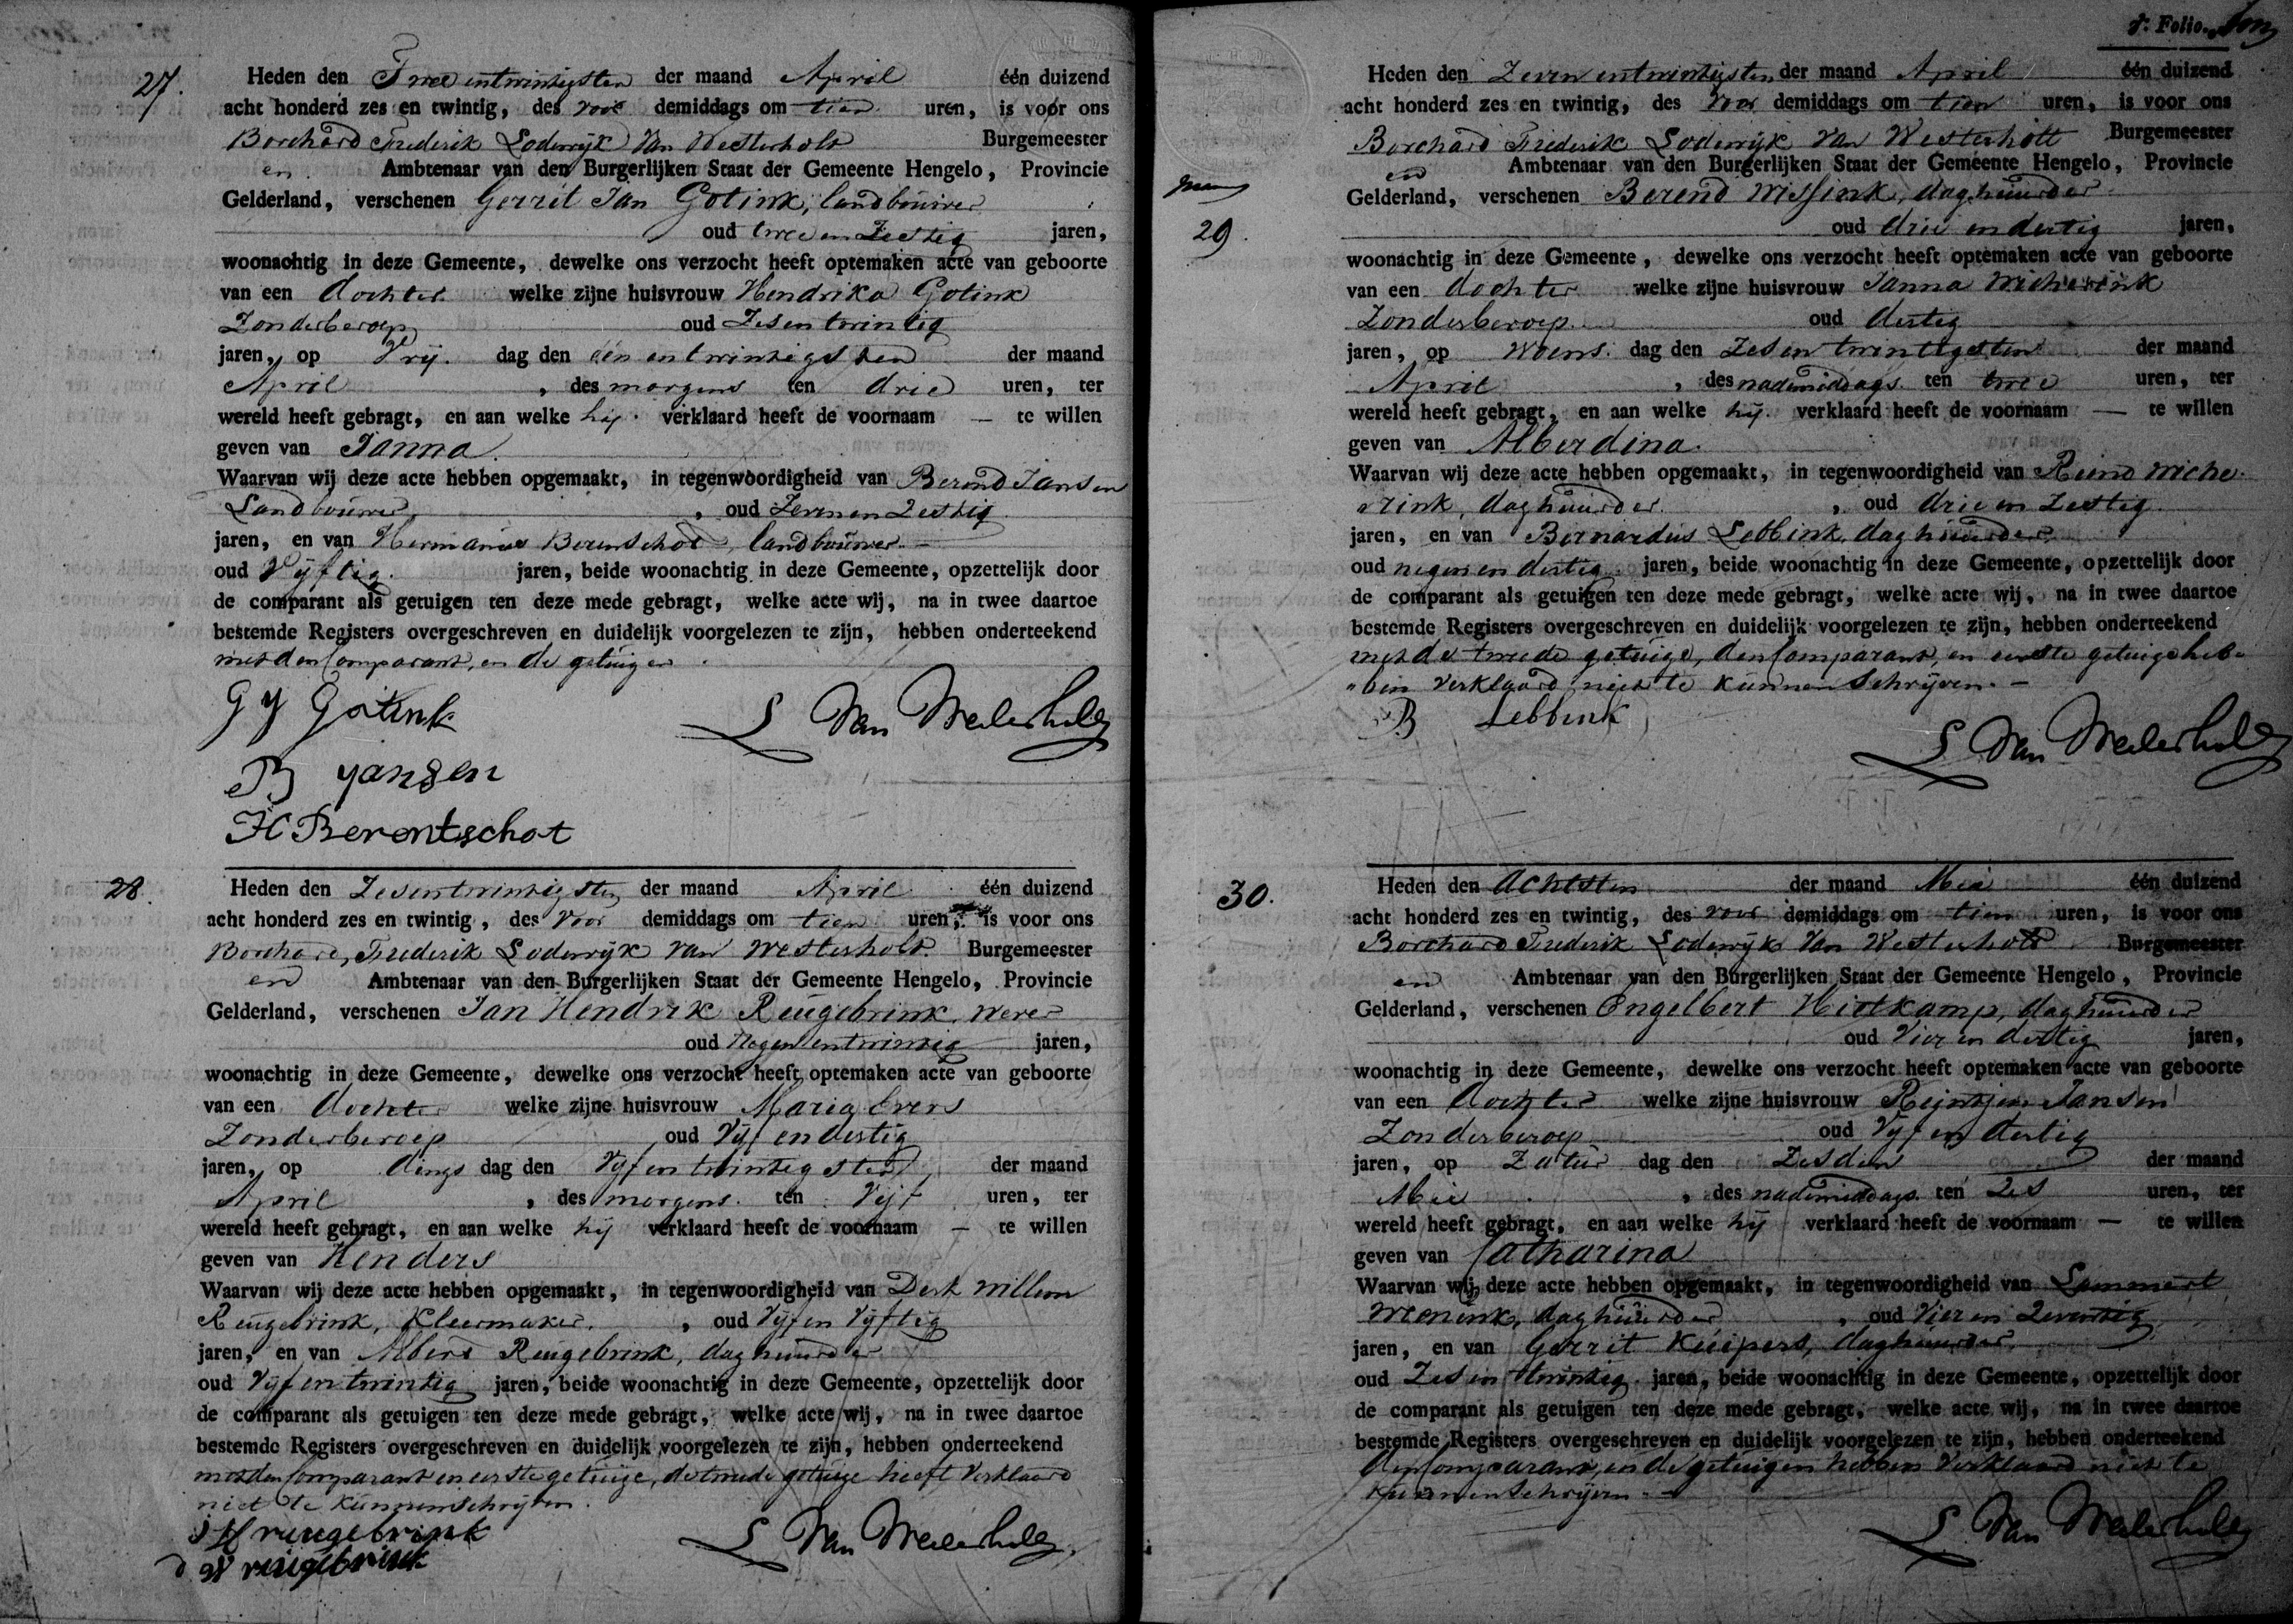 27.
Heden den Twee entwintigsten der maand April één duizend
acht honderd zes en twintig, des voor demiddags om tien uren, is voor ons
Borchard Frederik Lodewyk Van Westerholt Burgemeester
en Ambtenaar van den Burgerlijken Staat der Gemeente Hengelo, Provincie
Gelderland, verschenen Gerrit Jan Gotink, landbouwer
oud twee en Zestig jaren,
woonachtig in deze Gemeente, dewelke ons verzocht heeft optemaken acte van geboorte
van een dochter welke zijne huisvrouw Hendrika Gotink
Zonderberoep oud Zesentwintig
jaren, op Vrij dag den één entwintigsten der maand
April, des morgens ten drie uren, ter
wereld heeft gebragt, en aan welke hij verklaard heeft de voornaam — te willen
geven van Janna.
Waarvan wij deze acte hebben opgemaakt, in tegenwoordigheid van Berend Jansen
Landbouwer, oud Zevenen Zestig
jaren, en van Hermanus Berenschot, landbouwer. —
oud Vyftig. jaren, beide woonachtig in deze Gemeente, opzettelijk door
de comparant als getuigen ten deze mede gebragt, welke acte wij, na in twee daartoe
bestemde Registers overgeschreven en duidelijk voorgelezen te zijn, hebben onderteekend
met den Comparant, en de getuigen.
G J Gotink
S Van Westerholt
B jansen
H Berentschot
28.
Heden den Zesentwintigsten der maand April één duizend
acht honderd zes en twintig, des Voor demiddags om tien uren, is voor ons
Borchard, Frederik Lodewyk van Westerholt. Burgemeester
en Ambtenaar van den Burgerlijken Staat der Gemeente Hengelo, Provincie
Gelderland, verschenen Jan Hendrik Reugebrink, wever
oud Negen entwintig jaren,
woonachtig in deze Gemeente, dewelke ons verzocht heeft optemaken acte van geboorte
van een dochter welke zijne huisvrouw Maria Evers
Zonderberoep oud Vyf en dertig
jaren, op dings dag den Vyf en twintigsten der maand
April, des morgens. ten Vijf uren, ter
wereld heeft gebragt, en aan welke hij verklaard heeft de voornaam — te willen
geven van Henders
Waarvan wij deze acte hebben opgemaakt, in tegenwoordigheid van Derk Willem
Reugebrink, Kleermaker, oud Vyf en Vyftig
jaren, en van Albert Reugebrink, daghuurder
oud Vyf en twintig jaren, beide woonachtig in deze Gemeente, opzettelijk door
de comparant als getuigen ten deze mede gebragt, welke acte wij, na in twee daartoe
bestemde Registers overgeschreven en duidelijk voorgelezen te zijn, hebben onderteekend
met den Comparant en eerste getuige, de tweede getuige heeft Verklaard
niet te kunnen schrijven.
J H reugebrink
S Van Westerholt
d W reugebrink
Folio
Heden den Zeven entwintigsten der maand April één duizend
acht honderd zes en twintig, des voor demiddags om tien uren, is voor ons
Borchard Frederik Lodewijk van Westerholt Burgemeester
en Ambtenaar van den Burgerlijken Staat der Gemeente Hengelo, Provincie
Gelderland, verschenen Berend Wissink, daghuurder
29.
oud drie en dertig jaren,
woonachtig in deze Gemeente, dewelke ons verzocht heeft optemaken acte van geboorte
van een dochter welke zijne huisvrouw Janna Wicherink
Zonderberoep. oud dertig
jaren, op Woens. dag den Zesen twintigsten der maand
April, des nademiddags ten twee uren, ter
wereld heeft gebragt, en aan welke hij verklaard heeft de voornaam — te willen
geven van Alberdina.
Waarvan wij deze acte hebben opgemaakt, in tegenwoordigheid van Reind Wiche-
rink, daghuurder, oud drie en Zestig.
jaren, en van Bernardus Lebbink, daghuurder
oud negen en dertig jaren, beide woonachtig in deze Gemeente, opzettelijk door
de comparant als getuigen ten deze mede gebragt, welke acte wij, na in twee daartoe
bestemde Registers overgeschreven en duidelijk voorgelezen te zijn, hebben onderteekend
met de tweede getuige, den Comparant, en eerste getuige heb-
"ben Verklaard niet te kunnen Schrijven. —
B Lebbink
S Van Westerholt
30.
Heden den Achtsten der maand Mei één duizend
acht honderd zes en twintig, des voor demiddags om tien uren, is voor ons
Borchard Frederik Lodewyk Van Westerholt Burgemeester
en Ambtenaar van den Burgerlijken Staat der Gemeente Hengelo, Provincie
Gelderland, verschenen Engelbert Hietkamp, daghuurder
oud Vier en dertig jaren,
woonachtig in deze Gemeente, dewelke ons verzocht heeft optemaken acte van geboorte
van een dochter welke zijne huisvrouw Reintjen Jansen
Zonderberoep oud Vyf en dertig
jaren, op Zatur dag den Zesden der maand
Mei, des nademiddags ten Zes uren, ter
wereld heeft gebragt, en aan welke hij verklaard heeft de voornaam — te willen
geven van Catharina
Waarvan wij deze acte hebben opgemaakt, in tegenwoordigheid van Lammert
Wenink, daghuurder, oud Vier en Zeventig
jaren, en van Gerrit Kuipers, daghuurder,
oud Zes en twintig jaren, beide woonachtig in deze Gemeente, opzettelijk door
de comparant als getuigen ten deze mede gebragt, welke acte wij, na in twee daartoe
bestemde Registers overgeschreven en duidelijk voorgelezen te zijn, hebben onderteekend
den Comparant, en de getuigen hebben Verklaard niet te
kunnen Schrijven. —
S Van Westerholt